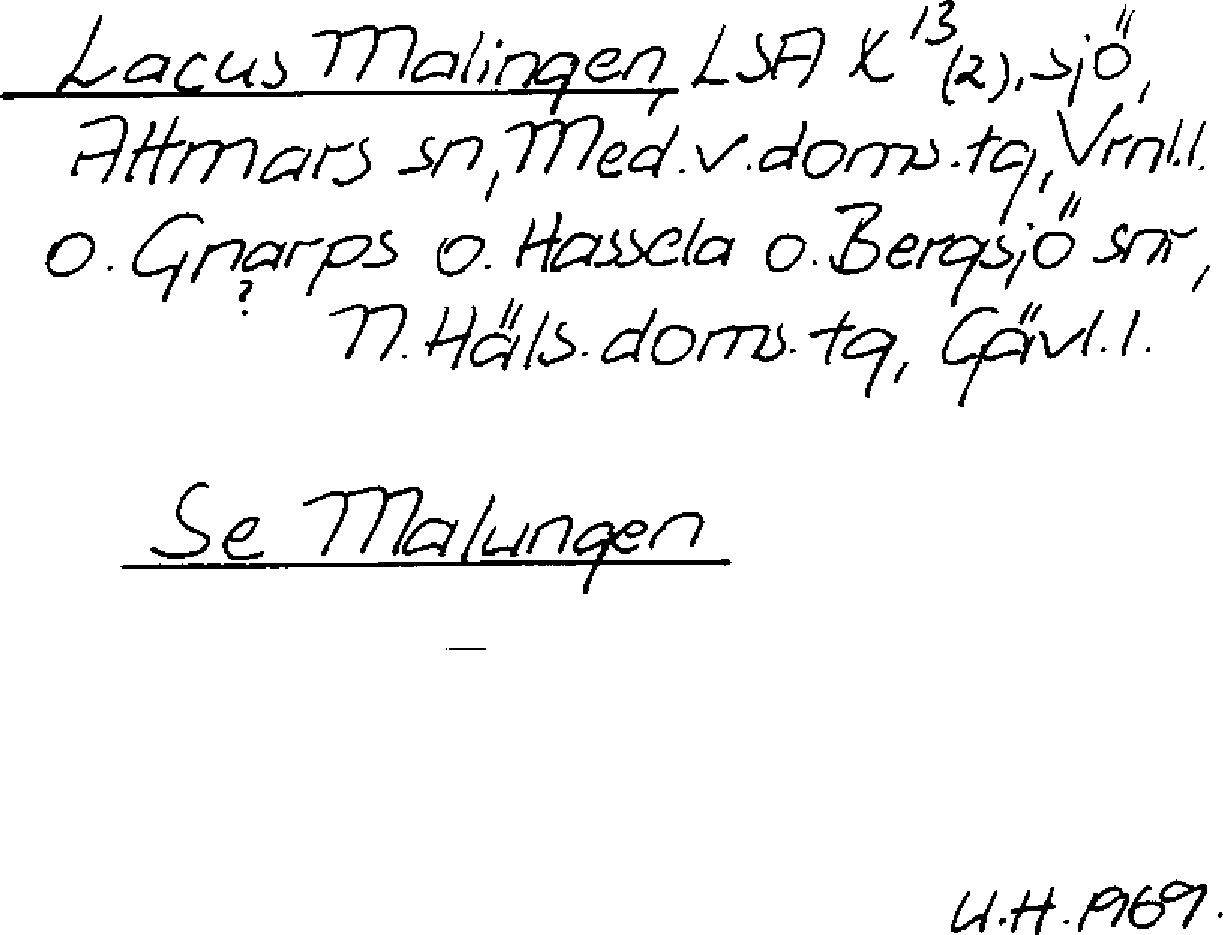 Lacus Malingen, LSA X 13 (2), sjö,
Attmars sn, Med.v.doms.tg, Vrnl.l.
o. Gnarps o. Hassela o. Bergsjö snr,
?
N. Häls. doms. tg, Gävl. l.
Se Malungen
—
U.H. 1969.